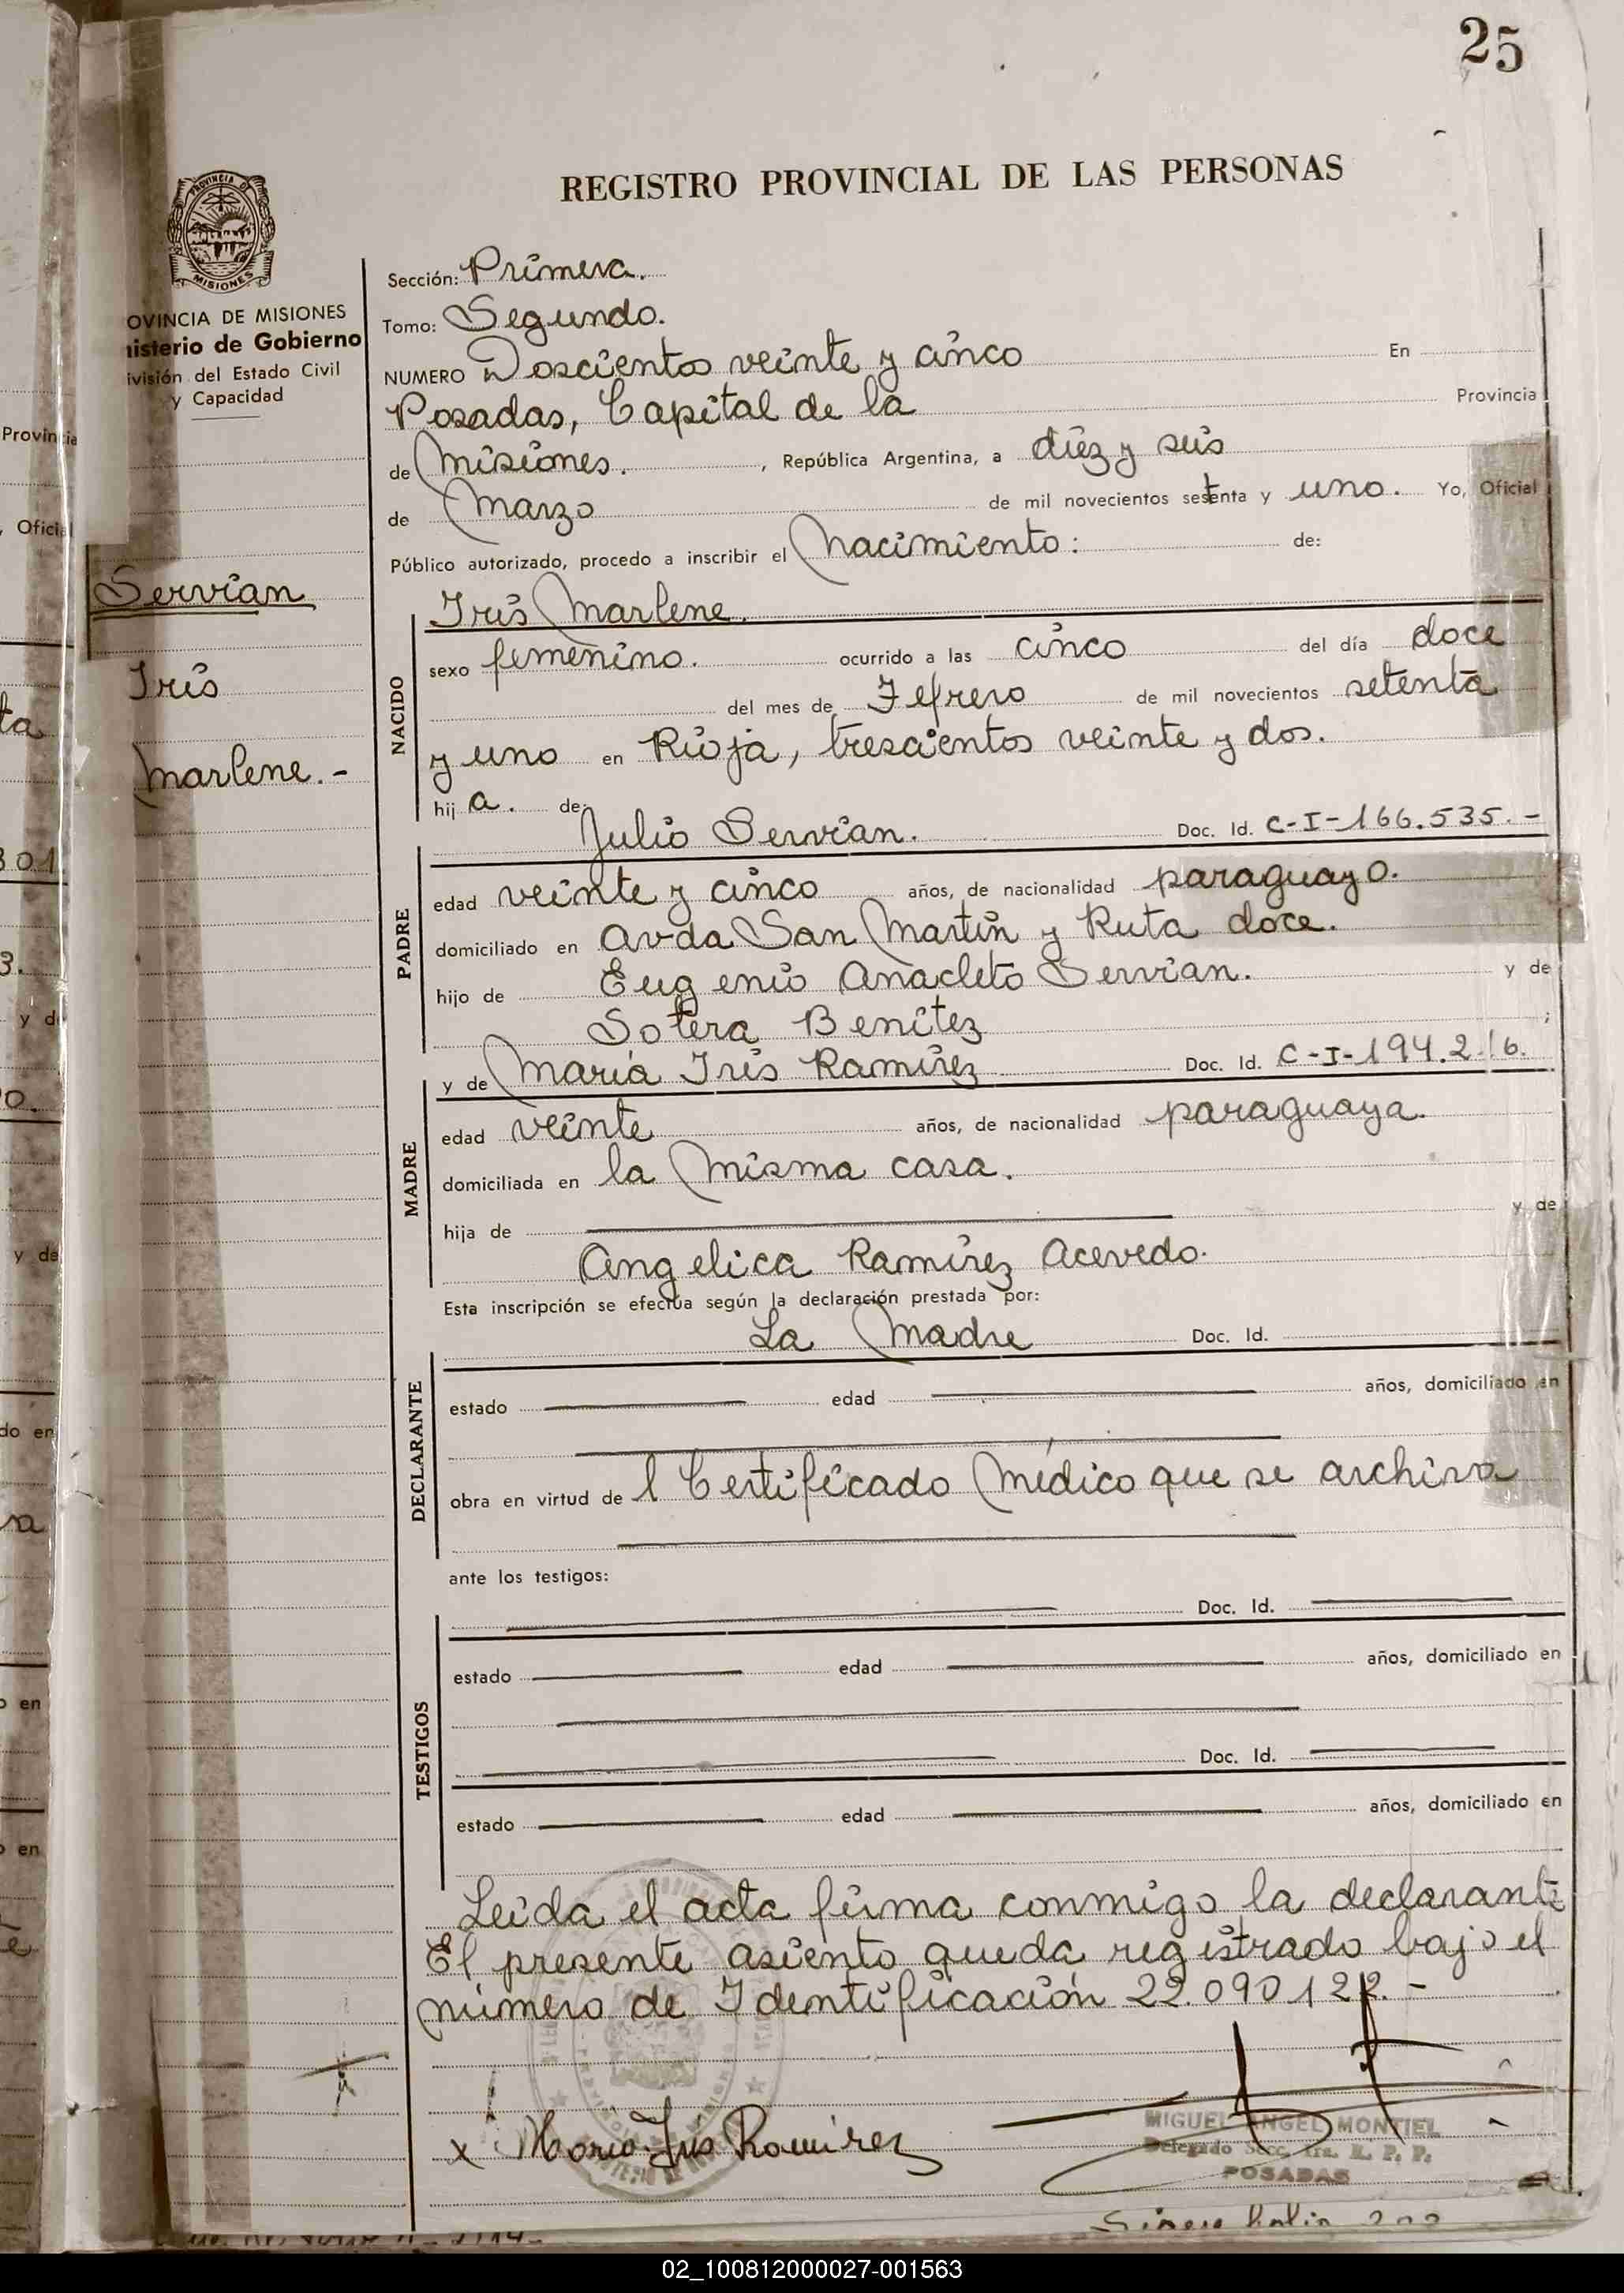 25
REGISTRO PROVINCIAL DE LAS PERSONAS
PROVINCIA DE
MISIONES
OVINCIA DE MISIONES
nisterio de Gobierno
ivisión del Estado Civil
y Capacidad
Servian
Iris
Marlene.-
Sección: Primera.
Tomo: Segundo.
NUMERO Doscientos veinte y cinco En
Posadas, Capital de la Provincia
de Misiones. , República Argentina, a diez y seis
de Marzo de mil novecientos setenta y uno. Yo, Oficial
Público autorizado, procedo a inscribir el Nacimiento: de:
Iris Marlene.
NACIDO
sexo femenino. ocurrido a las cinco del día doce
del mes de Febrero de mil novecientos setenta
y uno en Rioja, trescientos veinte y dos.
hij a. de:
Julio Servian. Doc. Id. C-I-166.535.-
PADRE
edad veinte y cinco años, de nacionalidad paraguayo.
domiciliado en Avda San Martin y Ruta doce.
hijo de Eugenio Anacleto Servian. y de
Sotera Benitez ;
y de María Iris Ramirez Doc. Id. C-I-194.216.
MADRE
edad veinte años, de nacionalidad paraguaya.
domiciliada en la misma casa.
hija de y de
Angelica Ramirez Acevedo.
Esta inscripción se efectúa según la declaración prestada por:
La Madre Doc. Id.
DECLARANTE
estado edad años, domiciliado en
obra en virtud de l Certificado Médico que se archiva
ante los testigos:
Doc. Id.
TESTIGOS
estado edad años, domiciliado en
Doc. Id.
estado edad años, domiciliado en
Leida el acta firma conmigo la declarante
El presente asiento queda registrado bajo el
número de Identificación 22.090.122.-
x Maria Iris Ramirez
MIGUEL ANGEL MONTIEL
Delegado Secc. 1ra. R. P. P.
POSADAS
02_100812000027-001563